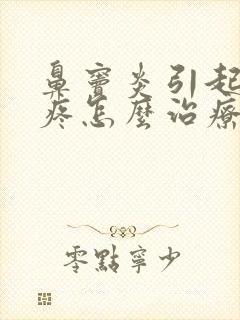 鼻竇炎引起
疼怎麼治療
零點寧少